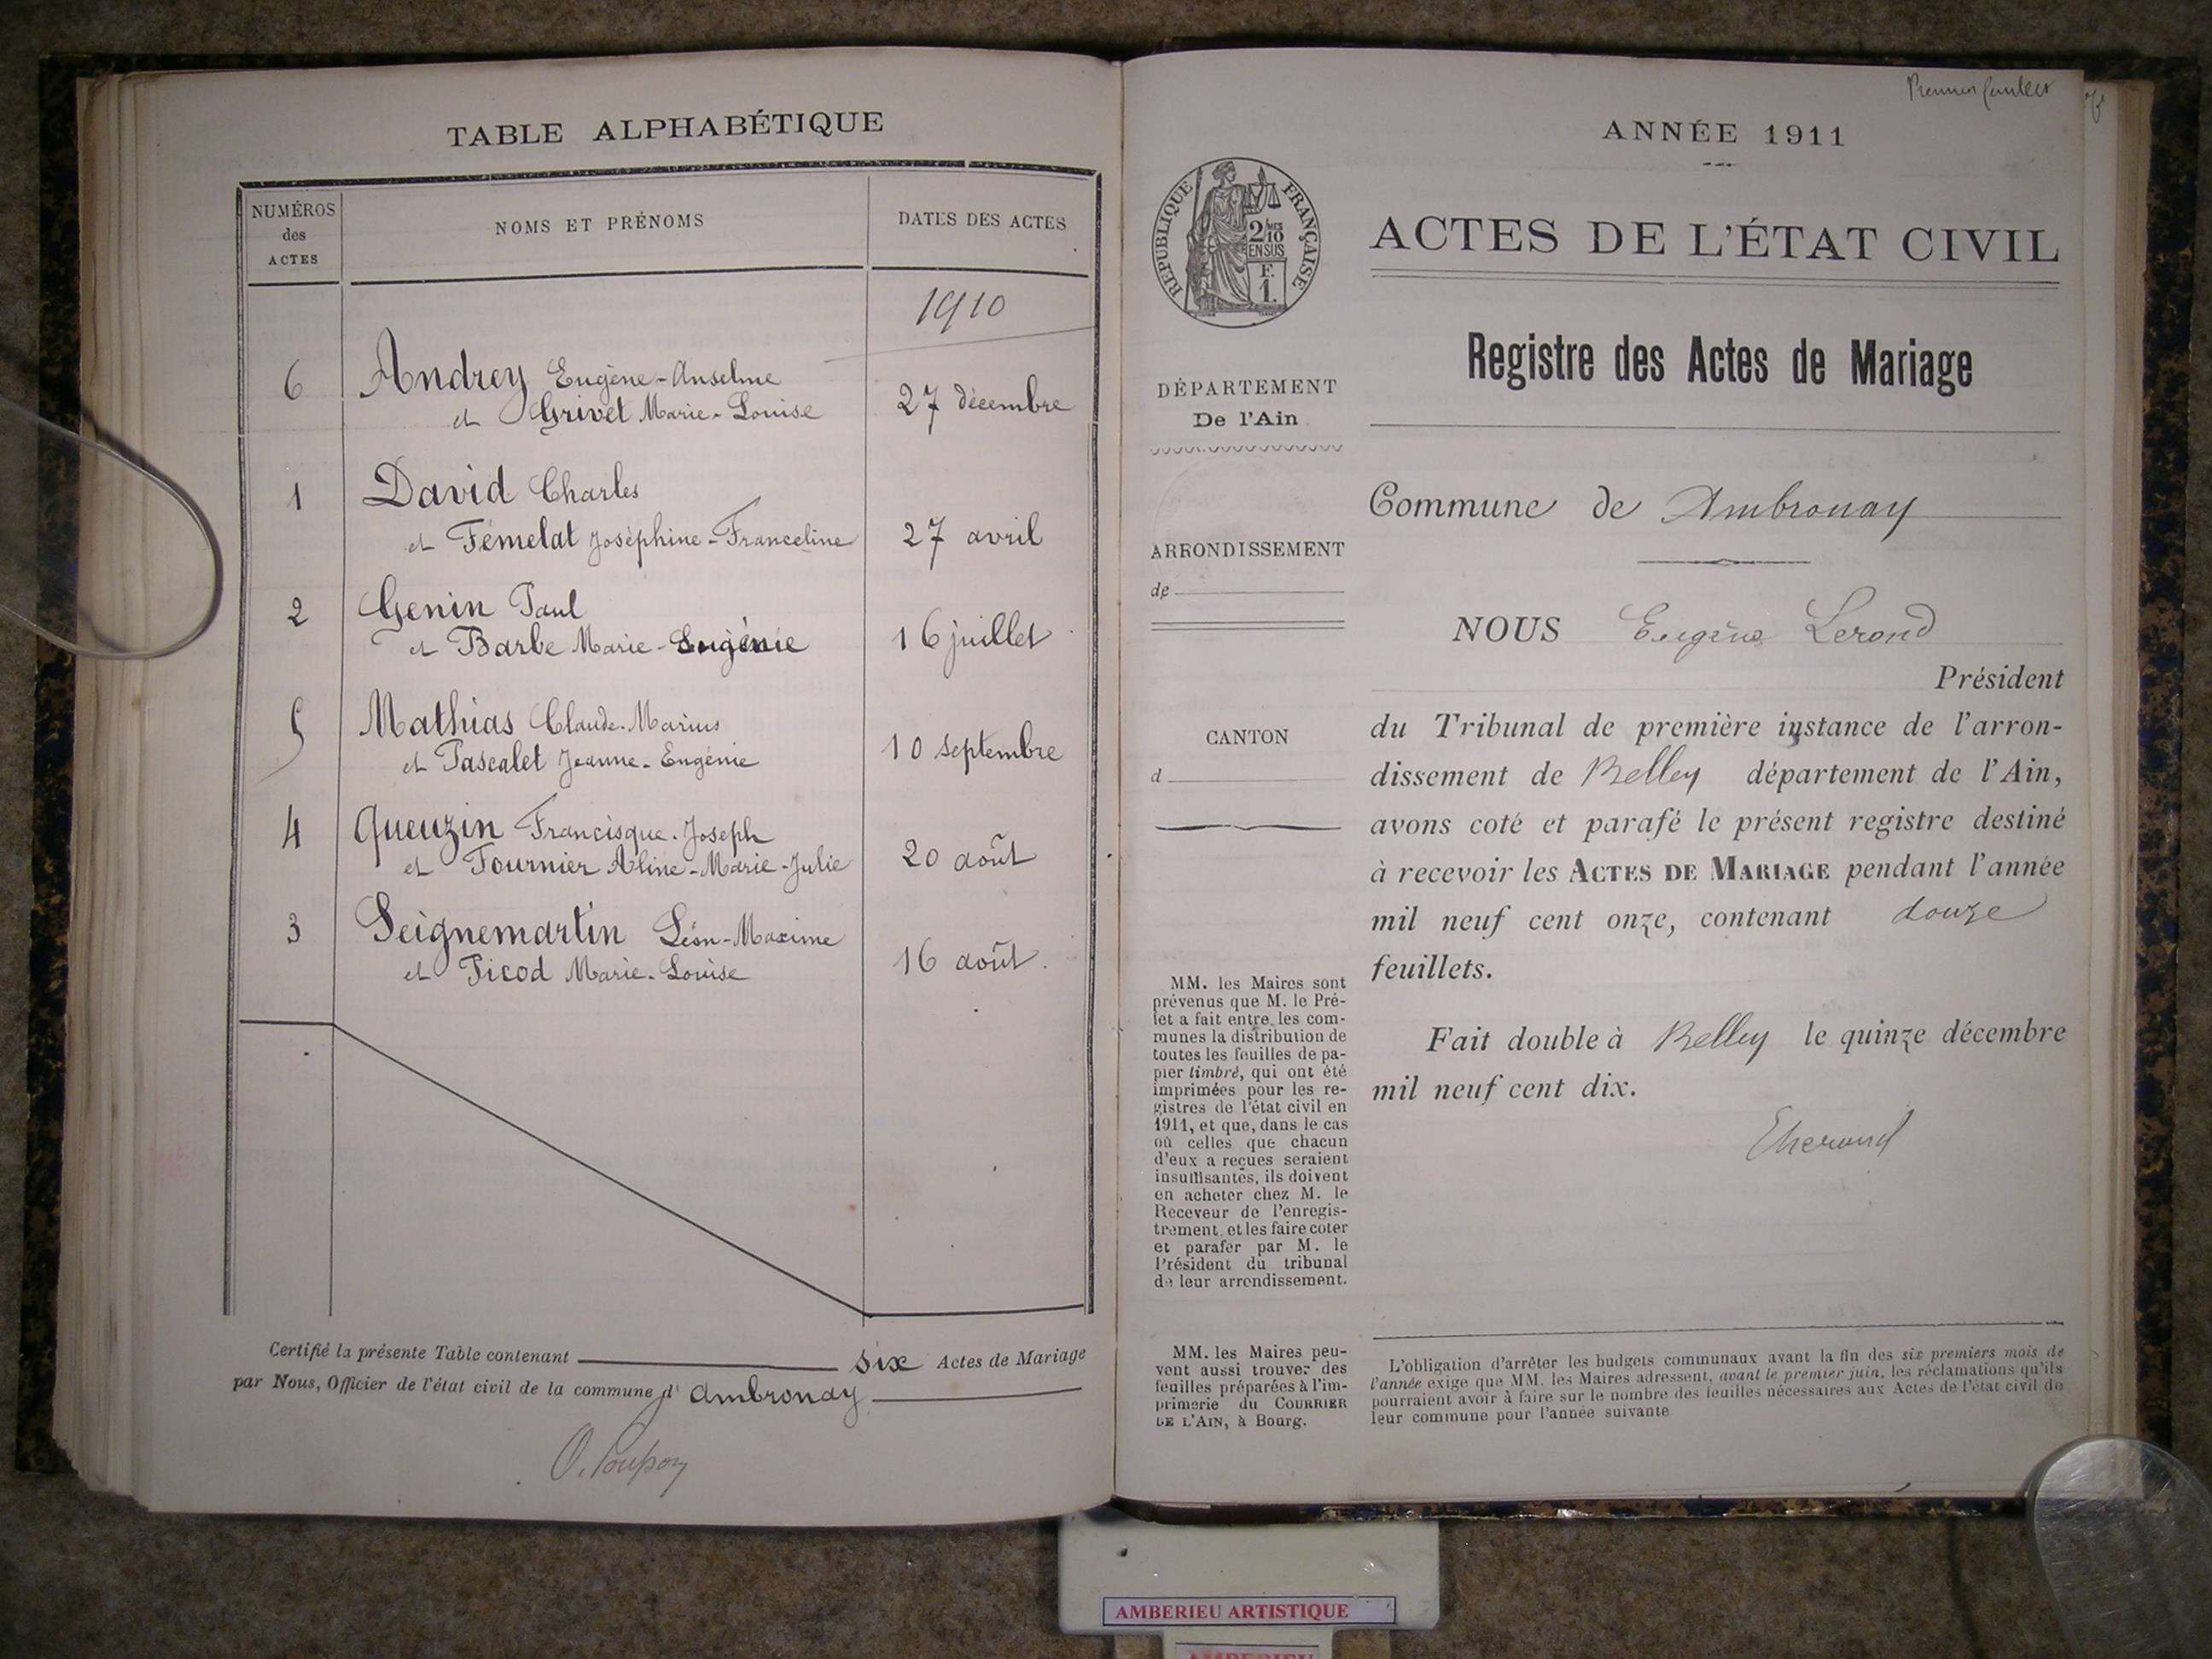 TABLE ALPHABÉTIQUE
NUMÉROS
des
ACTES
NOMS ET PRÉNOMS
DATES DES ACTES
1910
6 Andrey Eugène-Anselme
et Grivet Marie-Louise 27 décembre
1 David Charles
et Fémelat Joséphine-Franceline 27 avril
2 Genin Paul
et Barbe Marie-Eugénie 16 juillet
5 Mathias Claude-Marius
et Pascalet Jeanne-Eugénie 10 septembre
4 Queuzin Francisque-Joseph
et Fournier Aline-Marie-Julie 20 août
3 Seignemartin Léon-Maxime
et Picod Marie-Louise 16 août.
Certifié la présente Table contenant six Actes de Mariage
par Nous, Officier de l'état civil de la commune d' Ambronay
Premier feuillet
ANNÉE 1911
RÉPUBLIQUE FRANÇAISE
2/10
EN SUS
F.
1.
ACTES DE L'ÉTAT CIVIL
Registre des Actes de Mariage
DÉPARTEMENT
De l'Ain
ARRONDISSEMENT
de
CANTON
d
MM. les Maires sont
prévenus que M. le Pré-
fet a fait entre les com-
munes la distribution de
toutes les feuilles de pa-
pier timbré, qui ont été
imprimées pour les re-
gistres de l'état civil en
1911, et que, dans le cas
où celles que chacun
d'eux a reçues seraient
insuffisantes, ils doivent
en acheter chez M. le
Receveur de l'enregis-
trement, et les faire coter
et parafer par M. le
Président du tribunal
de leur arrondissement.
MM. les Maires peu-
vent aussi trouver des
feuilles préparées à l'im-
primerie du COURRIER
DE L'AIN, à Bourg.
Commune de Ambronay
NOUS Eugène Lerond
Président
du Tribunal de première instance de l'arron-
dissement de Belley département de l'Ain,
avons coté et parafé le présent registre destiné
à recevoir les ACTES DE MARIAGE pendant l'année
mil neuf cent onze, contenant douze
feuillets.
Fait double à Belley le quinze décembre
mil neuf cent dix.
L'obligation d'arrêter les budgets communaux avant la fin des six premiers mois de
l'année exige que MM. les Maires adressent, avant le premier juin, les réclamations qu'ils
pourraient avoir à faire sur le nombre des feuilles nécessaires aux Actes de l'état civil de
leur commune pour l'année suivante
AMBERIEU ARTISTIQUE
AMBERIEU